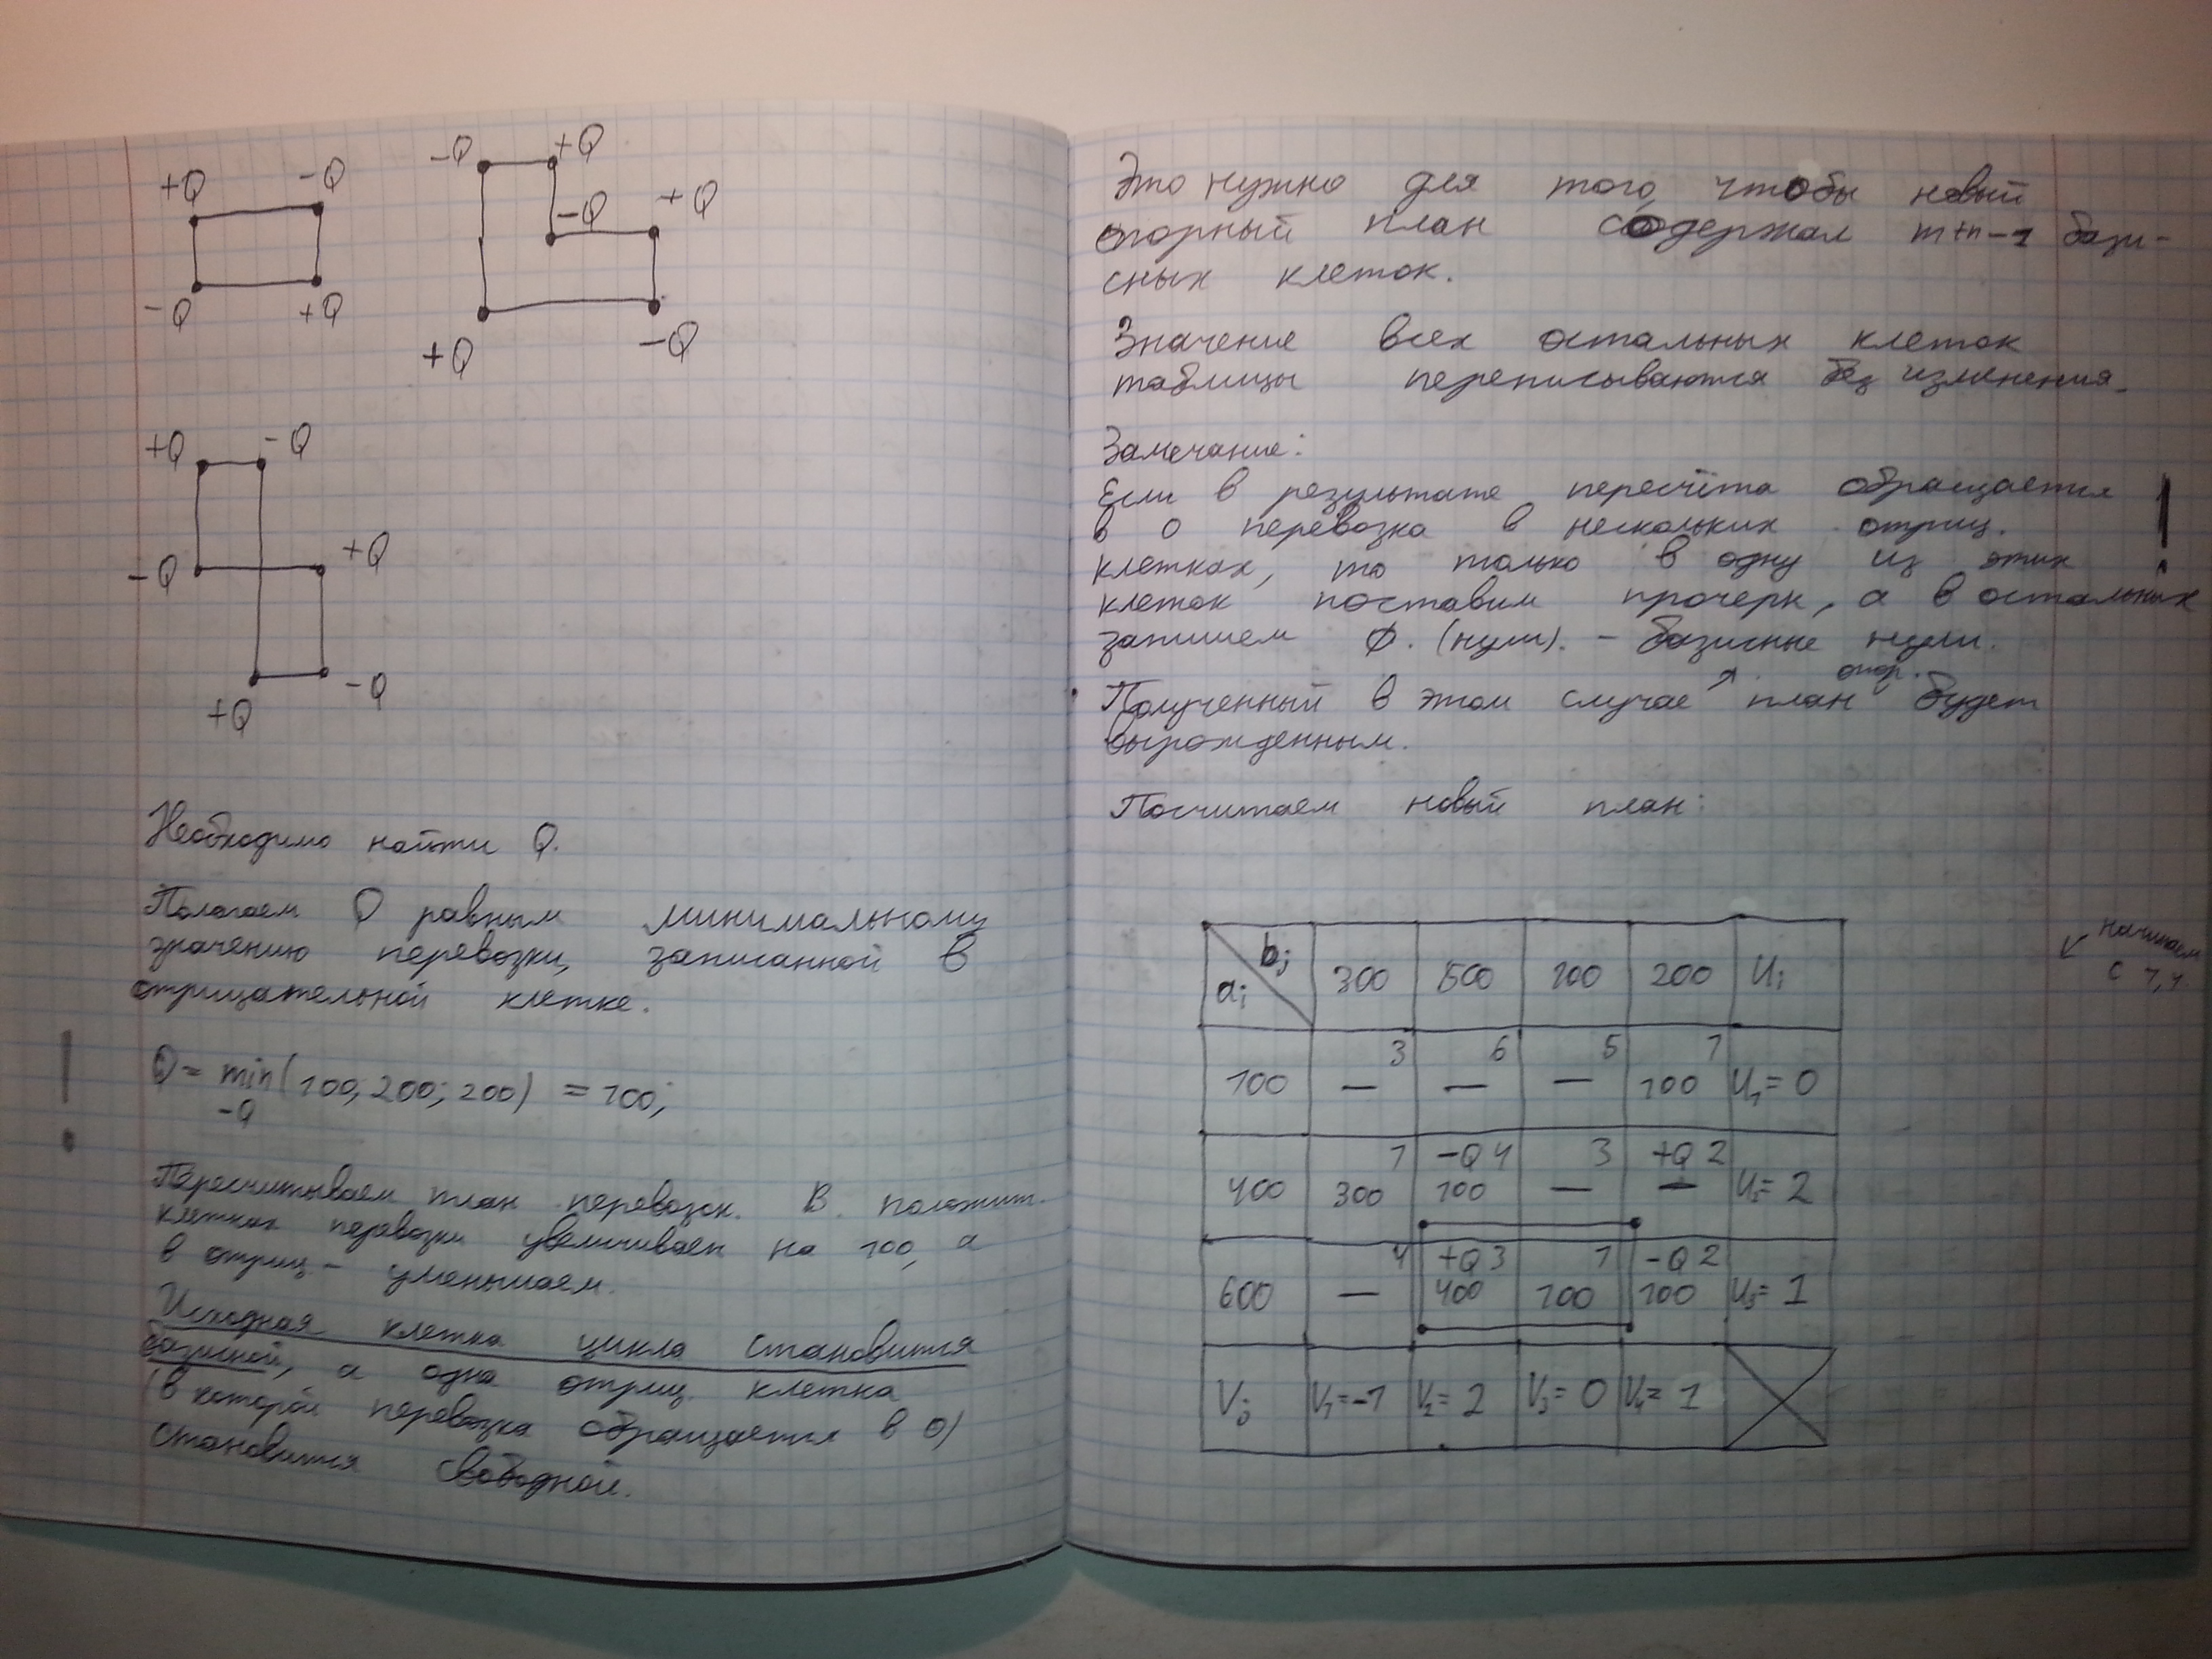 +Q -Q
-Q +Q
-Q +Q
-Q +Q
+Q -Q
+Q -Q
-Q +Q
+Q -Q
Необходимо найти Q.
Полагаем Q равным минимальному
значению перевозки, записанной в
отрицательной клетке.
Q = min (100; 200; 200) = 100;
-Q
Пересчитываем план перевозок. В положит.
клетках перевозки увеличиваем на 100, а
в отриц - уменьшаем.
Исходная клетка цикла становится
базисной, а одна отриц. клетка
(в которой перевозка обращается в 0)
становится свободной.
Это нужно для того, чтобы новый
опорный план содержал m+n-1 бази-
сных клеток.
Значение всех остальных клеток
таблицы переписываются без изменения.
Замечание:
Если в результате пересчёта обращается
в 0 перевозка в нескольких отриц.
клетках, то только в одну из этих
клеток поставим прочерк, а в остальных
запишем 0. (нули). - базисные нули.
Полученный в этом случае опор. план будет
вырожденным.
Посчитаем новый план:
начинаем
bj
ai 300 500 100 200 Ui
3 6 5 1
100 — — — 100 U1 = 0
1 -Q 4 3 +Q 2
400 300 100 — — U2 = 2
4 +Q 3 1 -Q 2
600 — 400 100 100 U3 = 1
Vj V1 = -1 V2 = 2 V3 = 0 V4 = 1